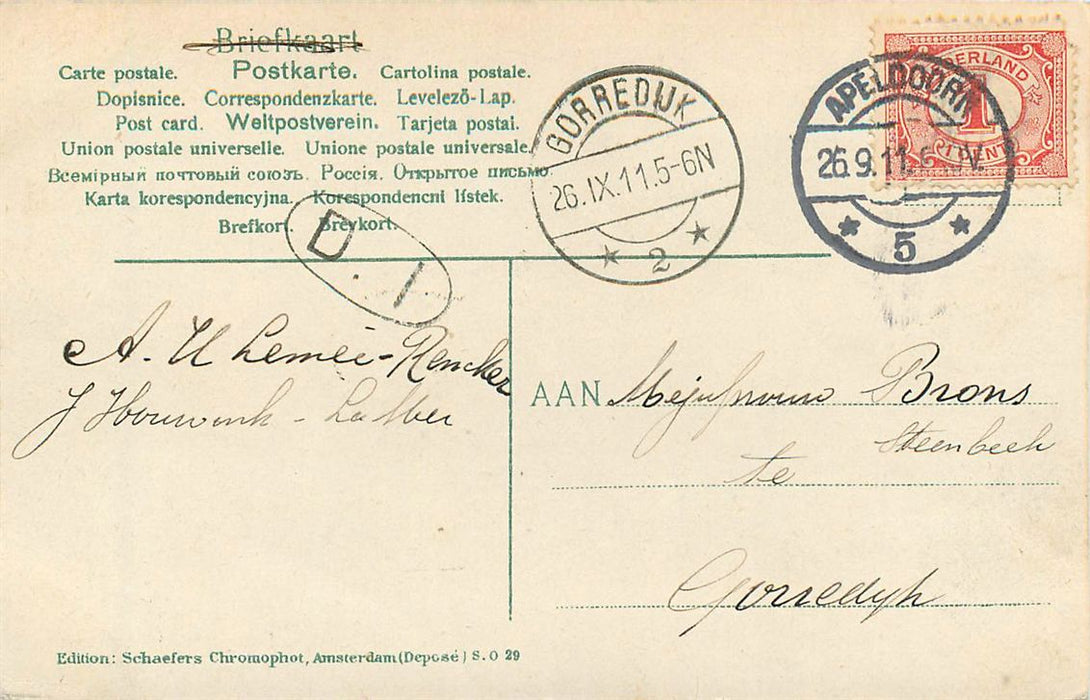 Briefkaart
Carte postale. Postkarte. Cartolina postale.
Dopisnice. Correspondenzkarte. Levelező-Lap.
Post card. Weltpostverein. Tarjeta postal.
Union postale universelle. Unione postale universale.
Всемірный почтовый союзъ. Россія. Открытое письмо.
Karta korespondencyjna. Korespondencni lístek.
Brefkort. Brevkort.
D. I
GORREDIJK
26.IX.11.5-6N
2
NEDERLAND
1
CENT
APELDOORN
26.9.11
5
A. U Lemêi-Rencker
J Houwink - 
AAN Mejufvrouw Brons
Steenbeek
te
Gorredijk
Edition: Schaefers Chromophot, Amsterdam (Deposé) S.O 29